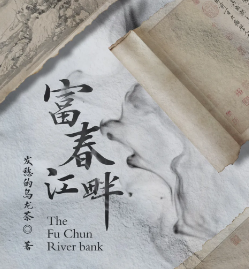 富春江畔
发穗的乌龙茶◎著
The
Fu Chun
River bank